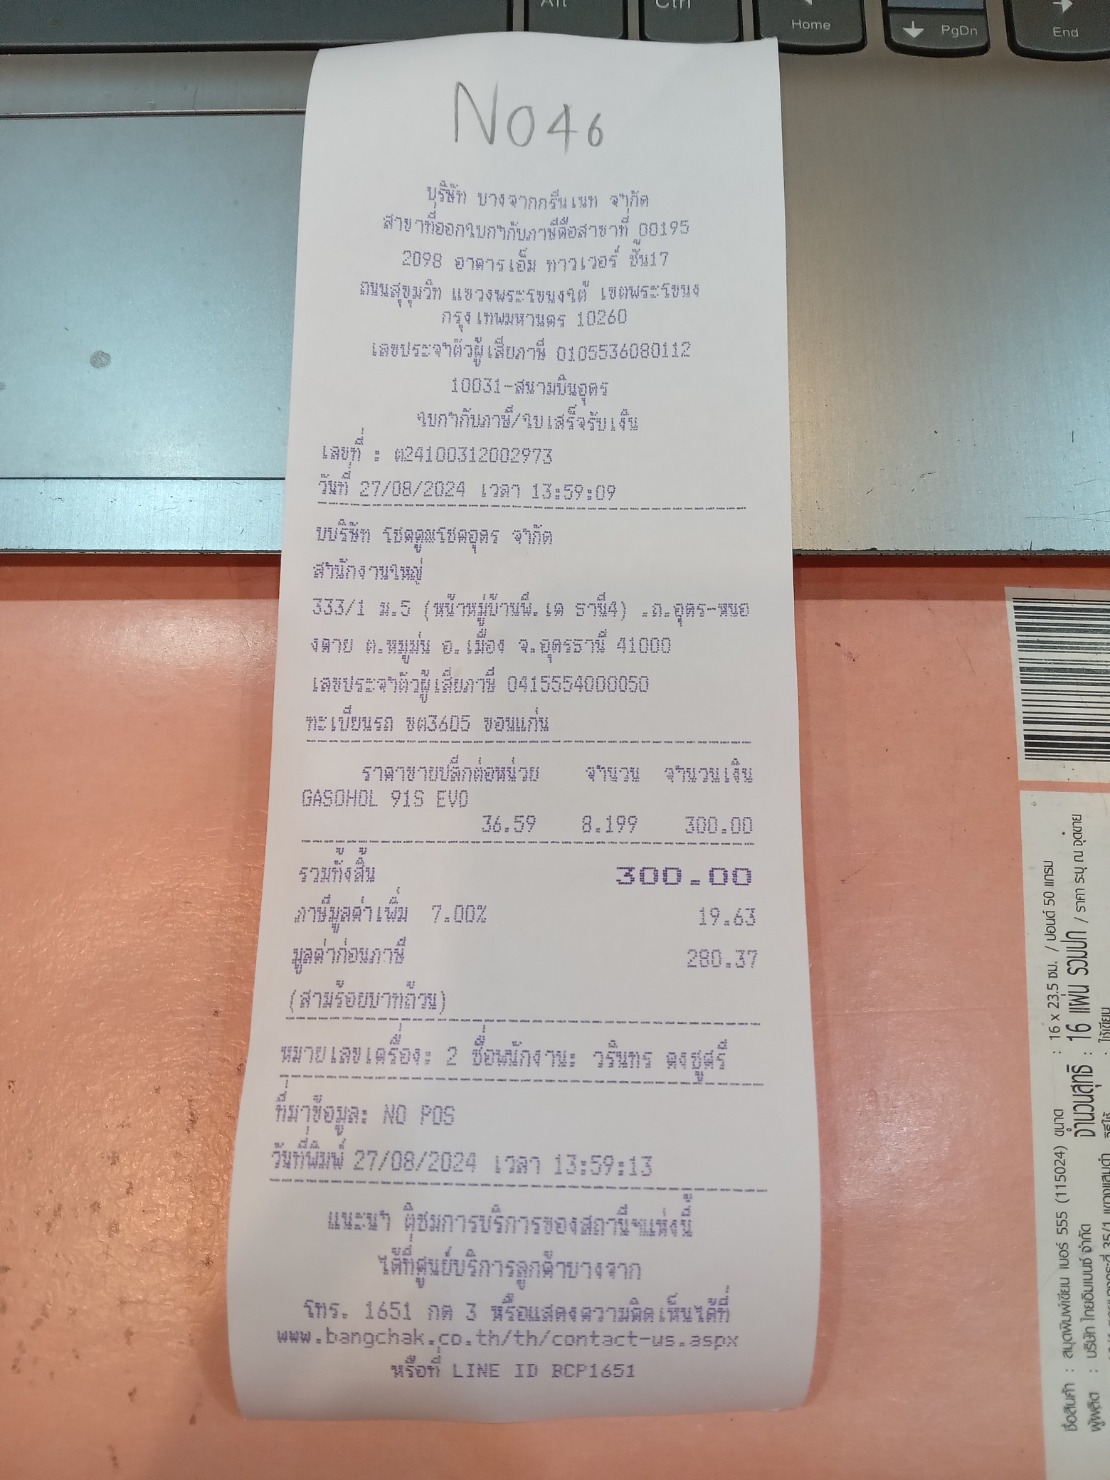 Alt
Ctrl
Home
PgDn
End
No 46
บริษัท บางจากกรีนเนท จำกัด
สาขาที่ออกใบกำกับภาษีคือสาขาที่ 00195
2098 อาคารเอ็ม ทาวเวอร์ ชั้น17
ถนนสุขุมวิท แขวงพระโขนงใต้ เขตพระโขนง
กรุงเทพมหานคร 10260
เลขประจำตัวผู้เสียภาษี 0105536080112
10031-สนามบินอุดร
ใบกำกับภาษี/ใบเสร็จรับเงิน
เลขที่ : ต24100312002973
วันที่ 27/08/2024 เวลา 13:59:09
บบริษัท โชคคูณโชคอุดร จำกัด
สำนักงานใหญ่
333/1 ม.5 (หน้าหมู่บ้านพี.เค ธานี4) .ถ.อุดร-หนอ
งคาย ต.หมูม่น อ.เมือง จ.อุดรธานี 41000
เลขประจำตัวผู้เสียภาษี 0415554000050
ทะเบียนรถ ขต3605 ขอนแก่น
ราคาขายปลีกต่อหน่วย จำนวน จำนวนเงิน
GASOHOL 91S EVO
36.59 8.199 300.00
รวมทั้งสิ้น 300.00
ภาษีมูลค่าเพิ่ม 7.00% 19.63
มูลค่าก่อนภาษี 280.37
(สามร้อยบาทถ้วน)
หมายเลขเครื่อง: 2 ชื่อพนักงาน: วรินทร คงชูศรี
ที่มาข้อมูล: NO POS
วันที่พิมพ์ 27/08/2024 เวลา 13:59:13
แนะนำ ติชมการบริการของสถานีฯแห่งนี้
ได้ที่ศูนย์บริการลูกค้าบางจาก
โทร. 1651 กด 3 หรือแสดงความคิดเห็นได้ที่
www.bangchak.co.th/th/contact-us.aspx
หรือที่ LINE ID BCP1651
ชื่อสินค้า : สมุดพิมพ์เขียน เบอร์ 555 (115024) ขนาด : 16 x 23.5 ซม. / ปอนด์ 50 แกรม
ผู้ผลิต : บริษัท ไทยอินเบนซ์ จำกัด จำนวนสุทธิ : 16 แผ่น รวมปก / ราคา ระบุ ณ จุดขาย